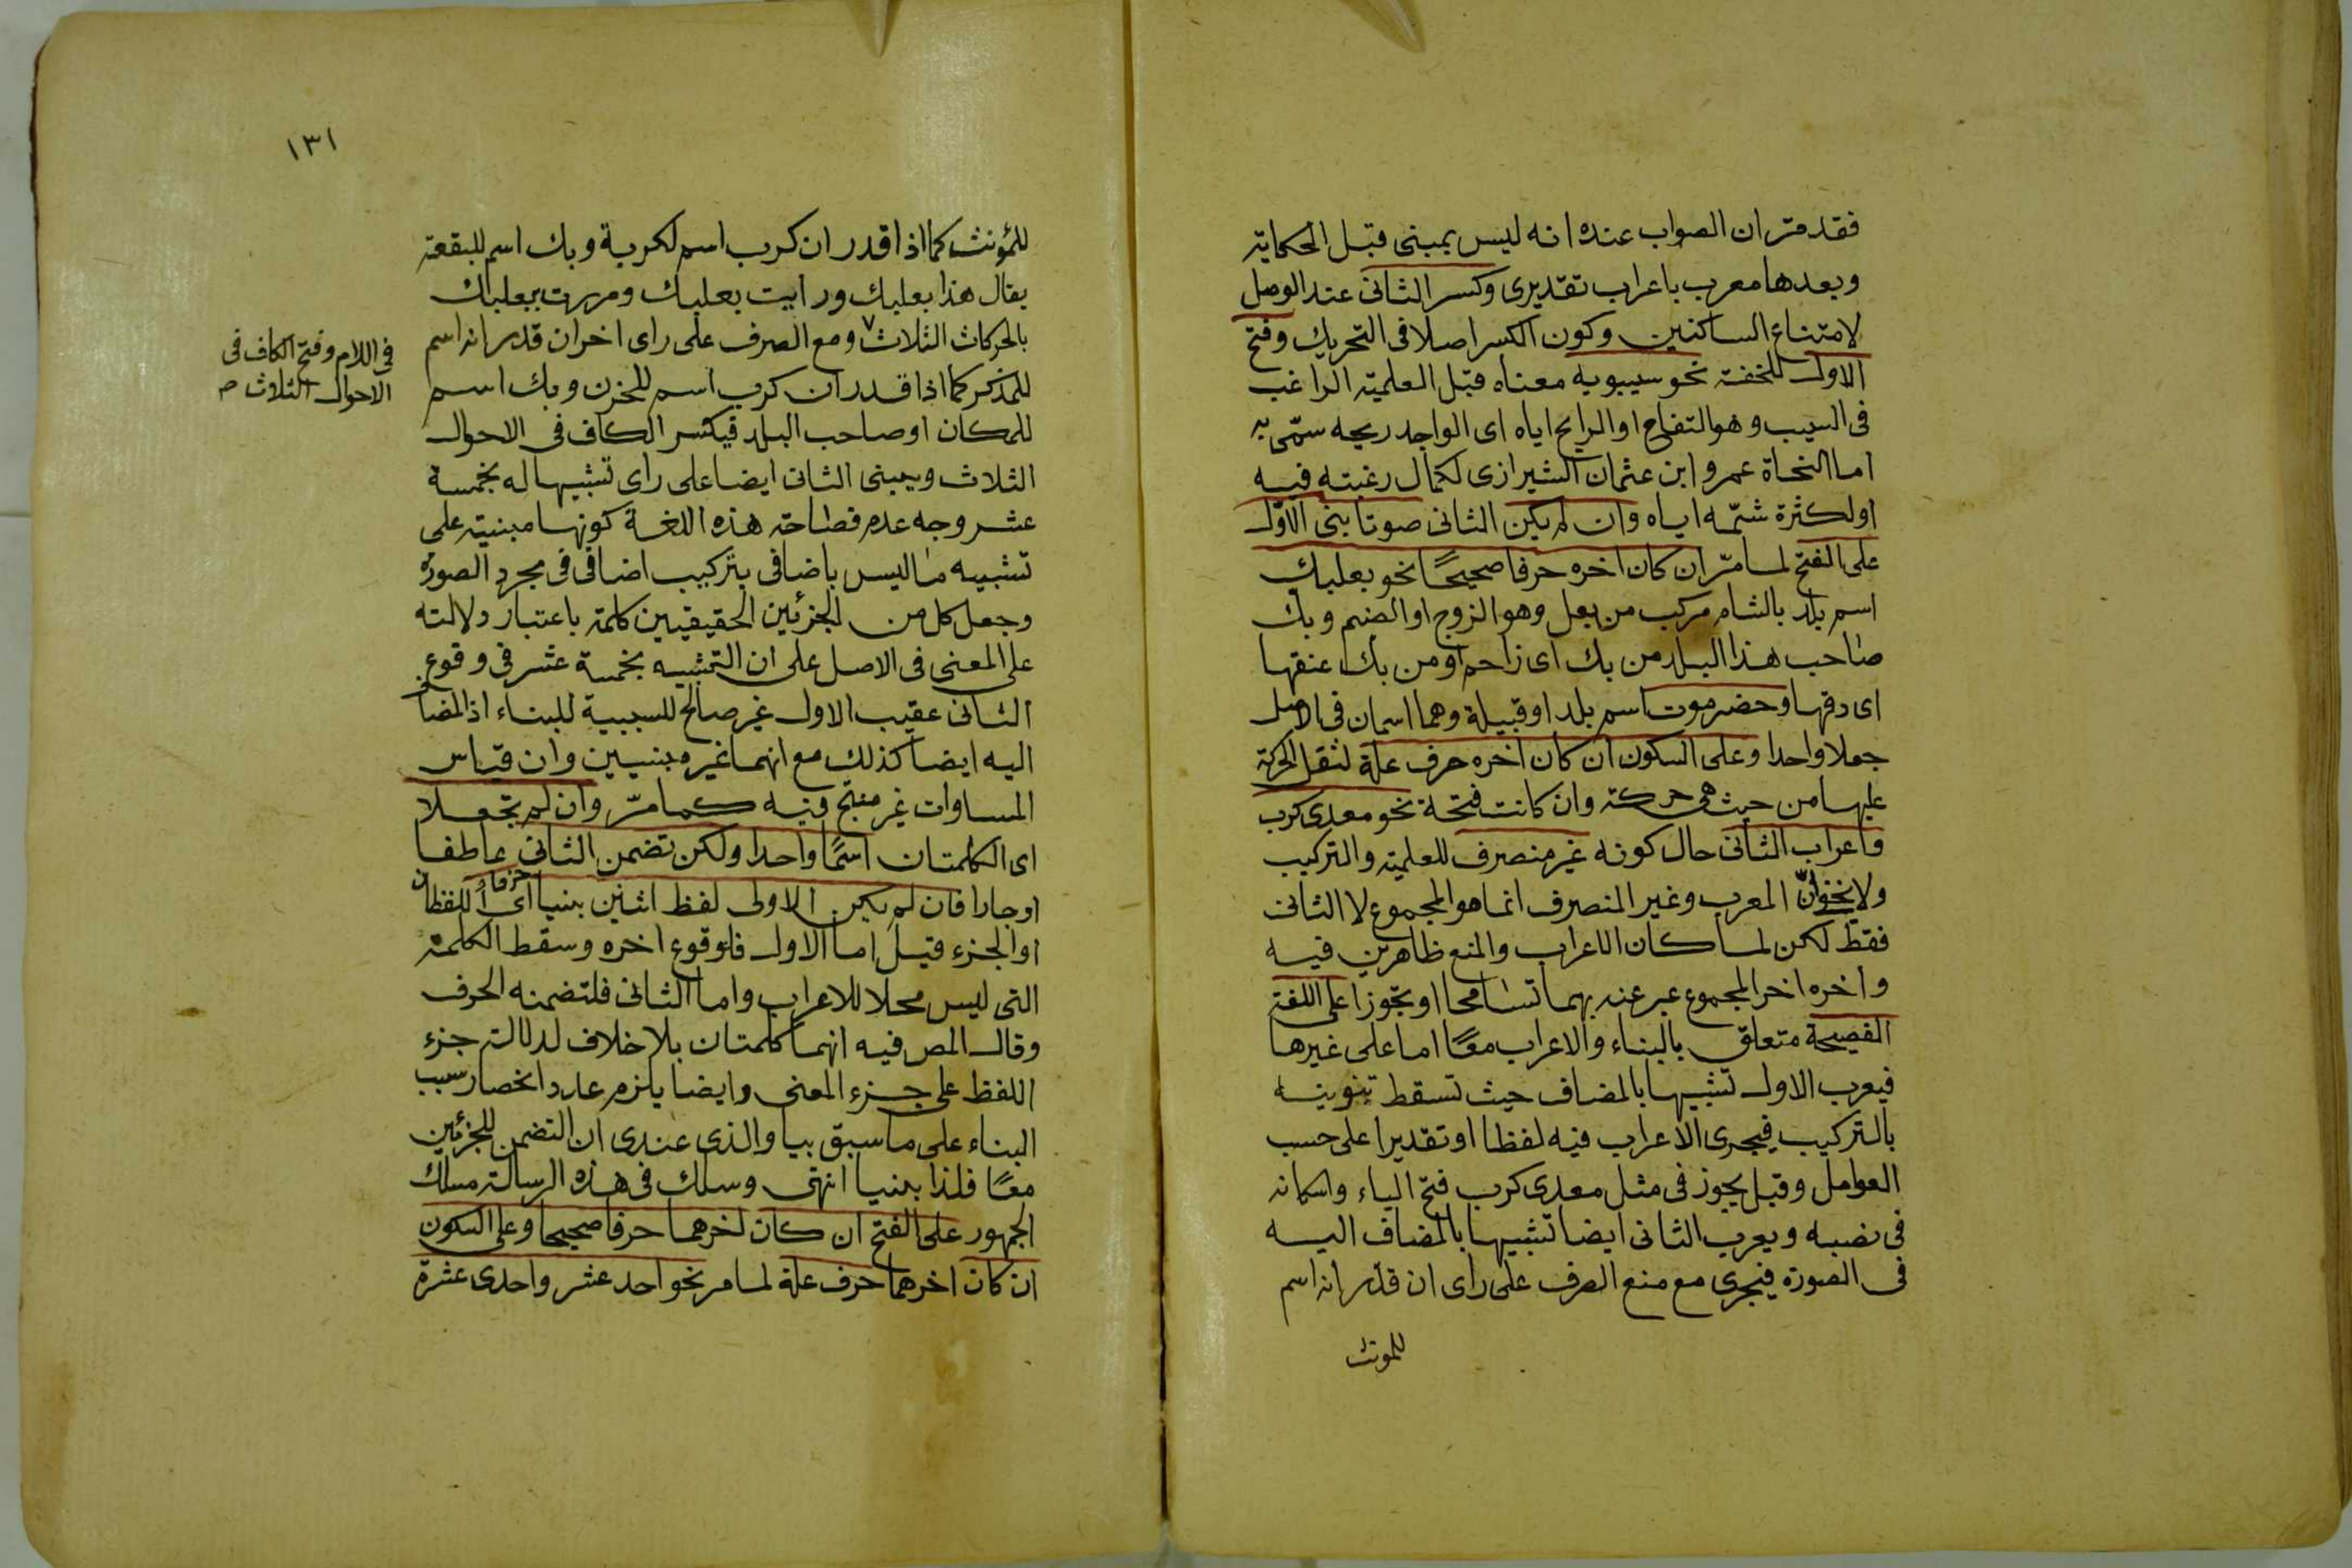 فقد مر ان الصواب عنده انه ليس بمبنى قبل الحكاية
وبعدها معرب باعراب تقديرى وكسر الثانى عند الوصل
لامتناع الساكنين وكون الكسر اصلا فى التحريك وفتح
الاول للخفة نحو سيبويه معناه قبل العلمية الراغب
فى السيب وهو التفاح او الرايح اياه اى الواجد ريحه سمّى به
اما النحاة عمرو ابن عثمان الشيرازى لكمال رغبته فيه
او لكثرة شمّه اياه وان لم يكن الثانى صوتا بنى الاوّل
على الفتح لما مرّ ان كان اخره حرفا صحيحًا نحو بعلبك
اسم بلد بالشام مركب من بعل وهو الزوج او الصنم وبك
صاحب هذا البلد من بك اى زاحم او من بك عنقها
اى دقها وحضرموت اسم بلد او قبيلة وهما اسمان فى الاصل
جعلا واحدا وعلى السكون ان كان اخره حرف علة لثقل الحركة
عليها من حيث هى حركة وان كانت فتحة نحو معدى كرب
واعراب الثانى حال كونه غير منصرف للعلمية والتركيب
ولا يخفى انّ المعرب وغير المنصرف انما هو المجموع لا الثانى
فقط لكن لما كان الاعراب والمنع ظاهرين فيه
واخره اخر المجموع عبر عنه بهما تسامحا او تجوزا على اللغة
الفصيحة متعلق بالبناء والاعراب معًا اما على غيرها
فيعرب الاول تشبيها بالمضاف حيث تسقط تنوينه
بالتركيب فيجرى الاعراب فيه لفظا او تقديرا على حسب
العوامل وقيل يجوز فى مثل معدى كرب فتح الياء واسكانه
فى نصبه ويعرب الثانى ايضا تشبيها بالمضاف اليه
فى الصورة فيجرى مع منع الصرف على راى ان قدر انه اسم
للمونث
١٣١
للمؤنث كما اذا قدر ان كرب اسم لكربة وبك اسم للبقعة
يقال هذا بعلبك ورايت بعلبك ومررت ببعلبك
بالحركات الثلاث ومع الصرف على راى اخر ان قدر انه اسم
للمذكر كما اذا قدر ان كرب اسم للحزن وبك اسم
للمكان او صاحب البلد فيكسر الكاف فى الاحوال
الثلاث ويبنى الثانى ايضا على راى تشبيها له بخمسة
عشر وجه عدم فصاحة هذه اللغة كونها مبنية على
تشبيه ما ليس باضافى بتركيب اضافى فى مجرد الصورة
وجعل كل من الجزئين الحقيقيين كلمة باعتبار دلالته
على المعنى فى الاصل على ان التشبيه بخمسة عشر فى وقوع
الثانى عقيب الاول غير صالح للسببية للبناء اذ المضاف
اليه ايضا كذلك مع انهما غير مبنيين وان قياس
المساوات غير منتج فيه كما مرّ وان لم تجعلا
اى الكلمتان اسمًا واحدا ولكن تضمن الثانى عاطفا
او جارا فان لم يكن الاولى لفظ اثنين بنيا اى اللفظان
او الجزء قيل اما الاول فلوقوع اخره وسقط الكلمة
التى ليس محلا للاعراب واما الثانى فلتضمنه الحرف
وقال المص فيه انهما كلمتان بلا خلاف لدلالة جزء
اللفظ على جزء المعنى وايضا يلزم عدد انحصار سبب
البناء على ما سبق بيا والذى عندى ان التضمن للجزئين
معًا فلذا بنيا انتهى وسلك فى هذه الرسالة مسلك
الجمهور على الفتح ان كان اخرهما حرفا صحيحا وعلى السكون
ان كان اخرهما حرف علة لما مر نحو احد عشر واحدى عشرة
فى اللام وفتح الكاف فى
الاحوال الثلاث ص